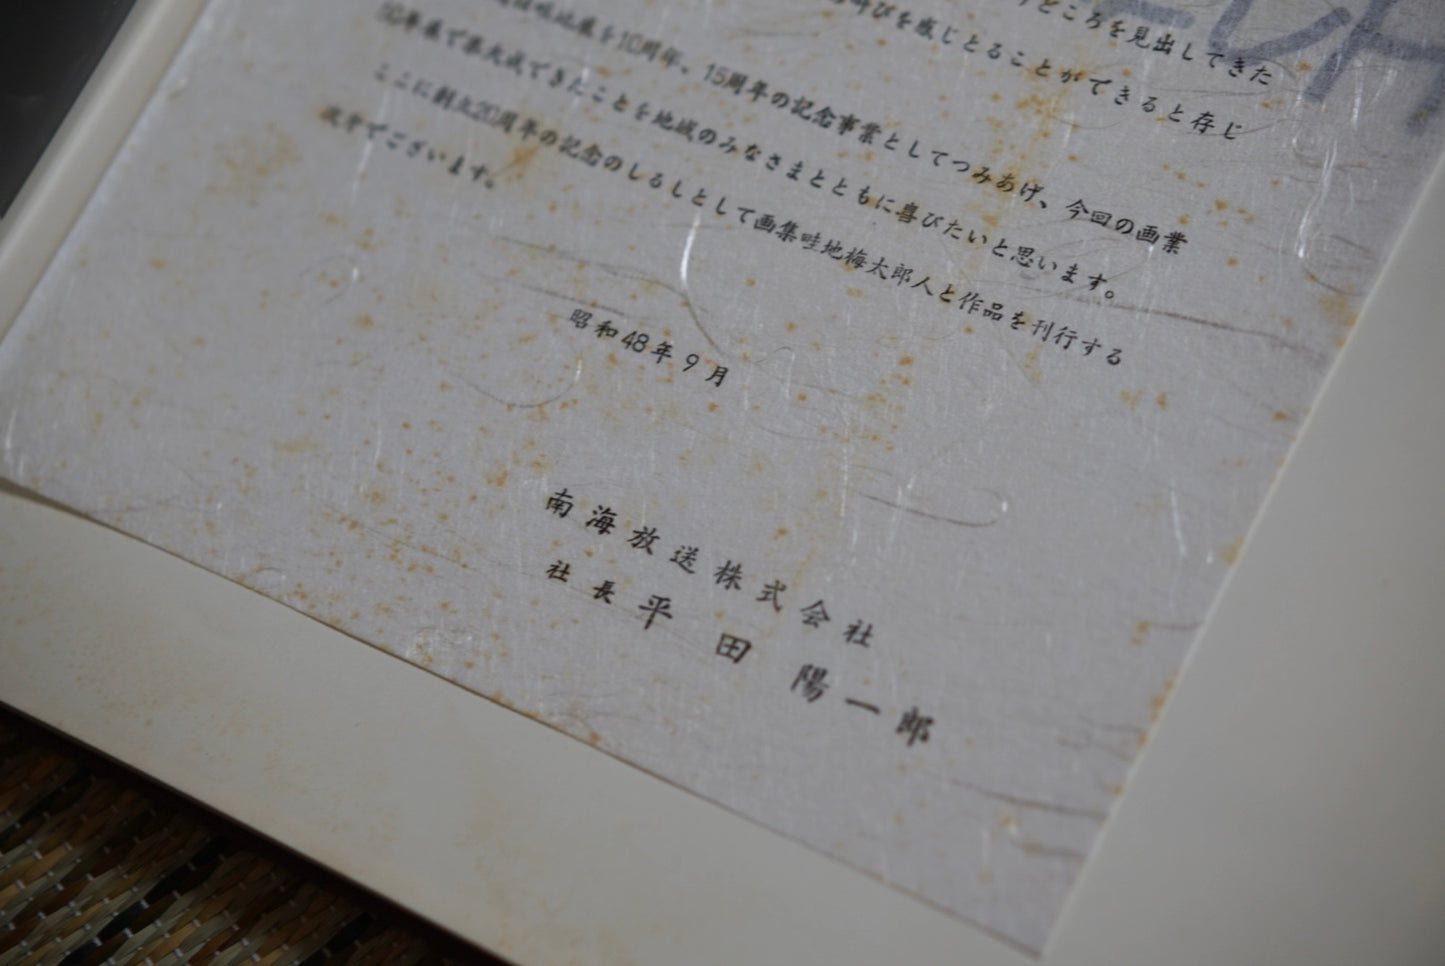 ところを見出してきた
叫びを感じとることができると存じ
を10周年、15周年の記念事業としてつみあげ、今回の画業
50年展で集大成できたことを地域のみなさまとともに喜びたいと思います。
ここに創立20周年の記念のしるしとして画集畦地梅太郎人と作品を刊行する
次第でございます。
昭和48年9月
南海放送株式会社
社長平田陽一郎